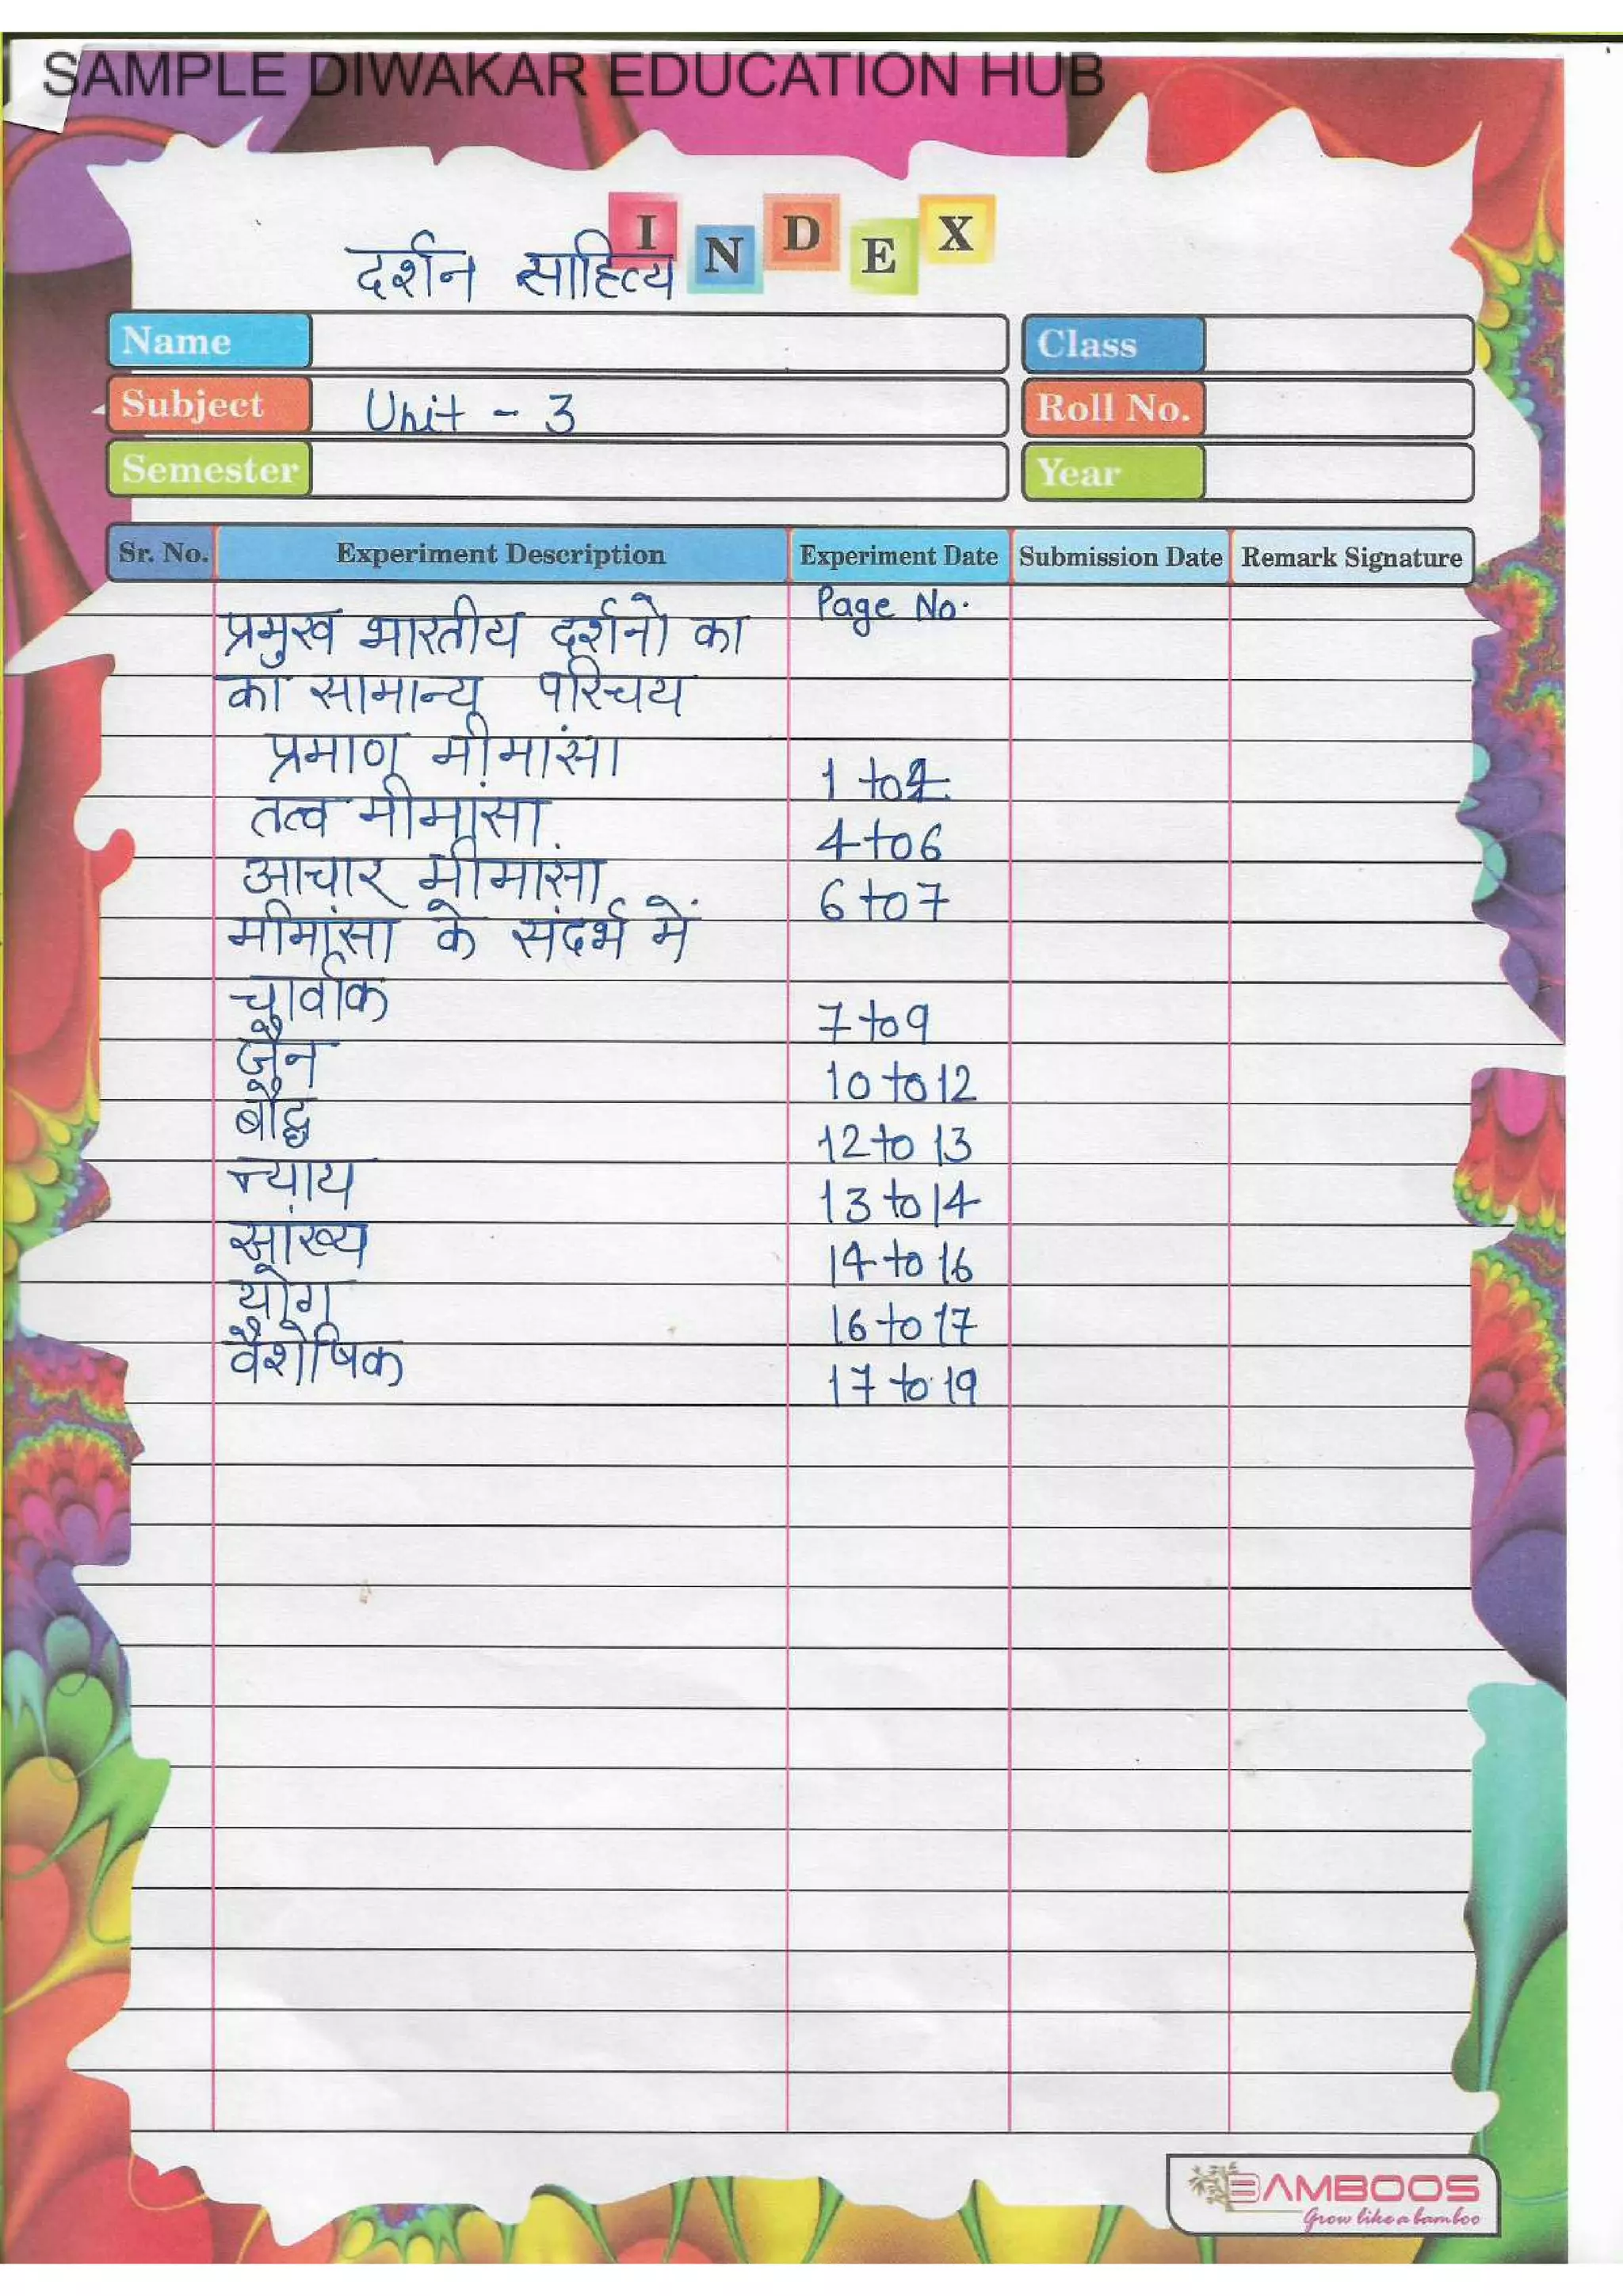 SAMPLE DIWAKAR EDUCATION HUB
INDEX
दर्शन साहित्य
Name
Class
Subject Unit - 3
Roll No.
Semester
Year
Sr. No. Experiment Description Experiment Date Submission Date Remark Signature
Page No.
प्रमुख भारतीय दर्शनो का
का सामान्य परिचय
प्रमाण मीमांसा 1 to 4
तत्व मीमांसा 4 to 6
आचार मीमांसा 6 to 7
मीमांसा के संदर्भ में
चार्वाक 7 to 9
जैन 10 to 12
बौद्ध 12 to 13
न्याय 13 to 14
सांख्य 14 to 16
योग 16 to 17
वैशेषिक 17 to 19
BAMBOOS
Grow like a bamboo